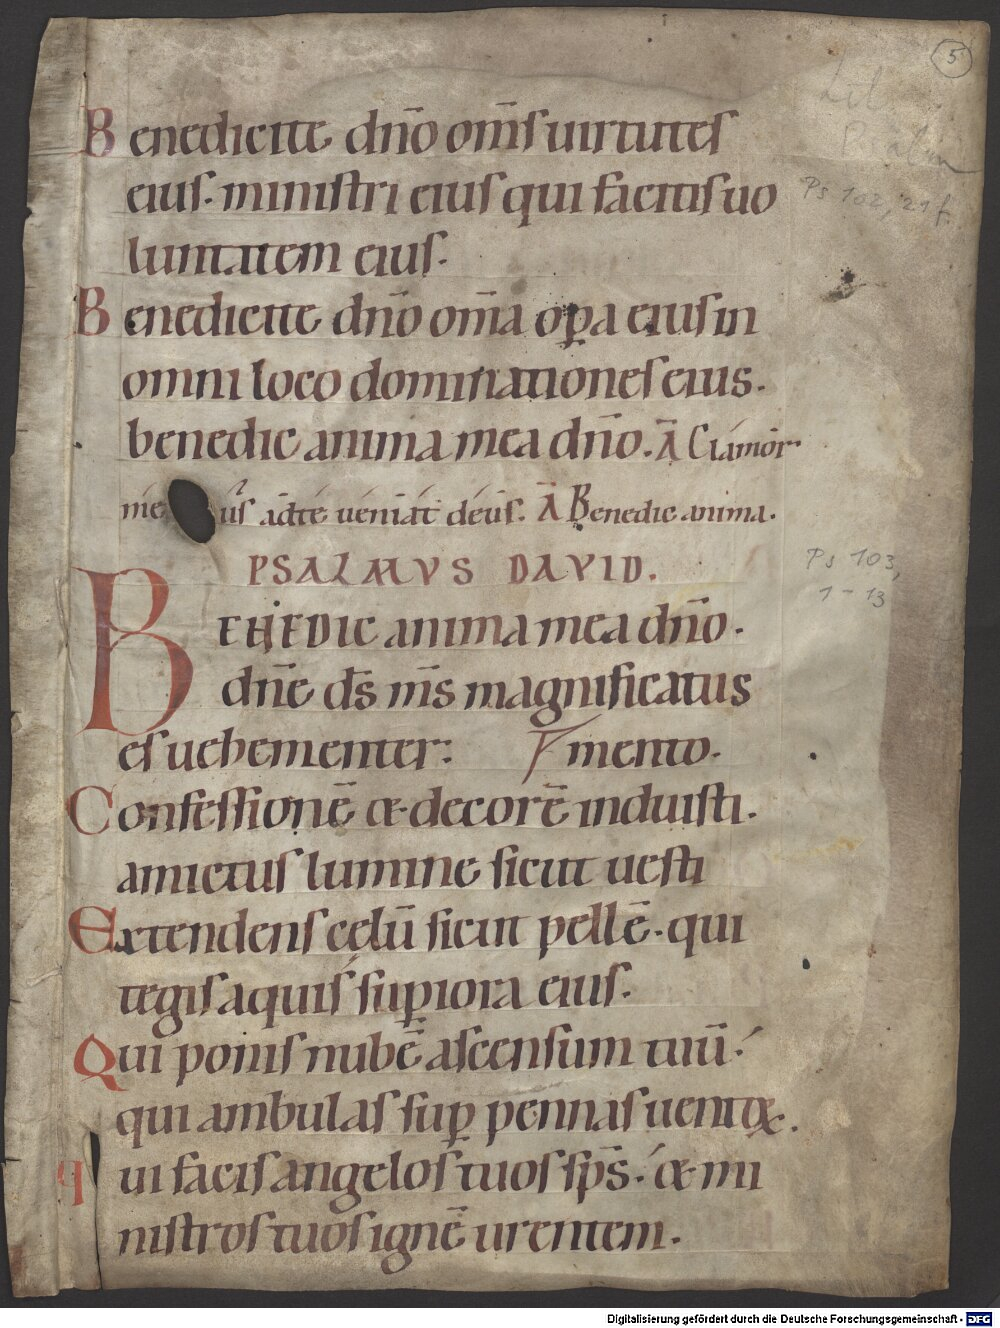 5
Lib
Psalm
Benedicite dn̄o om̄s uirtutes
eius. ministri eius qui facitis uo
Ps 102, 21 f.
luntatem eius.
Benedicite dn̄o om̄a op̄a eius in
omni loco dominationes eius.
benedic anima mea dn̄o. Ā Clamor
me us adte ueniat deus. Ā Benedic anima.
PSALMVS DAVID.
Ps 103,
1-13
BENEDIC anima mea dn̄o.
dn̄e ds̄ m̄s magnificatus
es uehementer: mento.
Confessionē & decorē induisti.
amictus lumine sicut uesti
Extendens cęlū sicut pellē. qui
tegis aquis sup̱iora eius.
Qui ponis nubē ascensum tuū.
qui ambulas sup̱ pennas uentoꝝ.
qui facis angelos tuos sp̄s. & mi
nistros tuos ignē urentem.
Digitalisierung gefördert durch die Deutsche Forschungsgemeinschaft - DFG